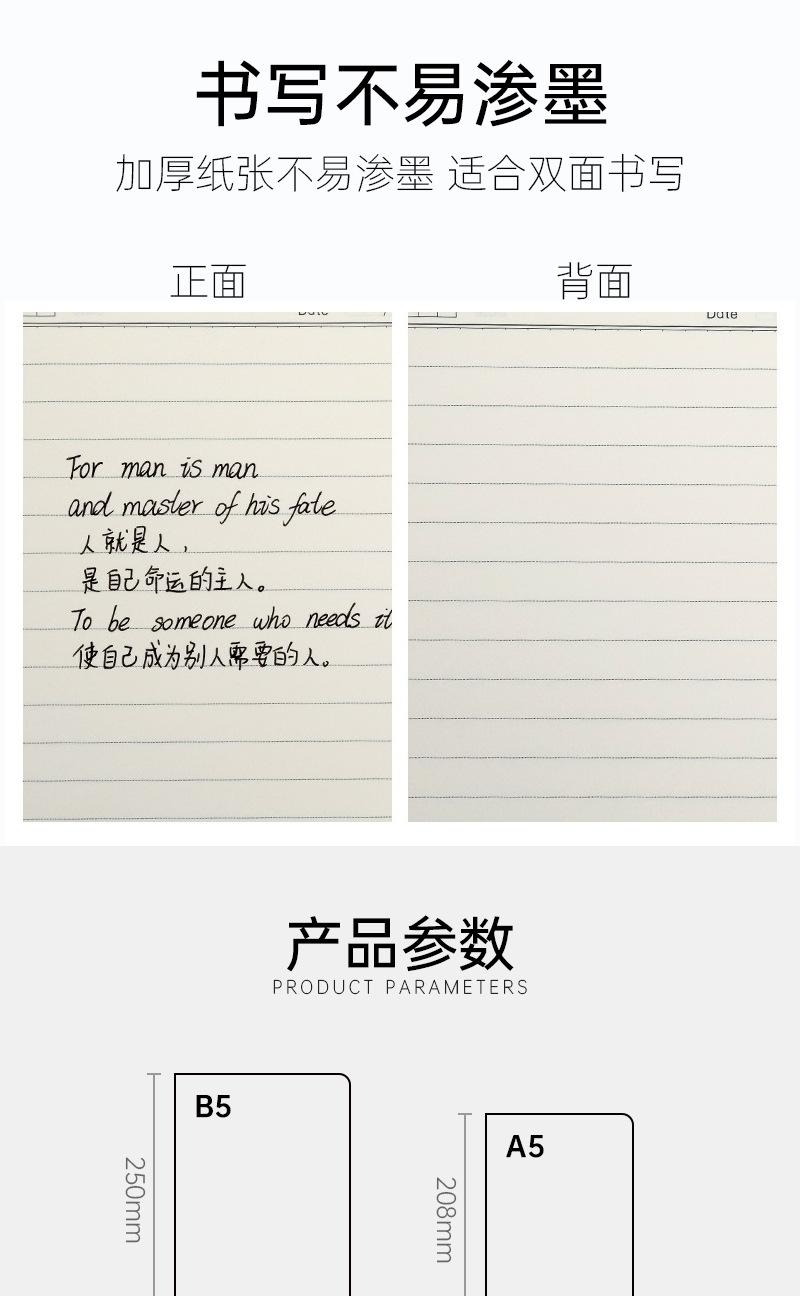 书写不易渗墨
加厚纸张不易渗墨 适合双面书写
正面
背面
Date
Date
For man is man
and master of his fate
人就是人，
是自己命运的主人。
To be someone who needs it
使自己成为别人需要的人。
产品参数
PRODUCT PARAMETERS
B5
250mm
A5
208mm